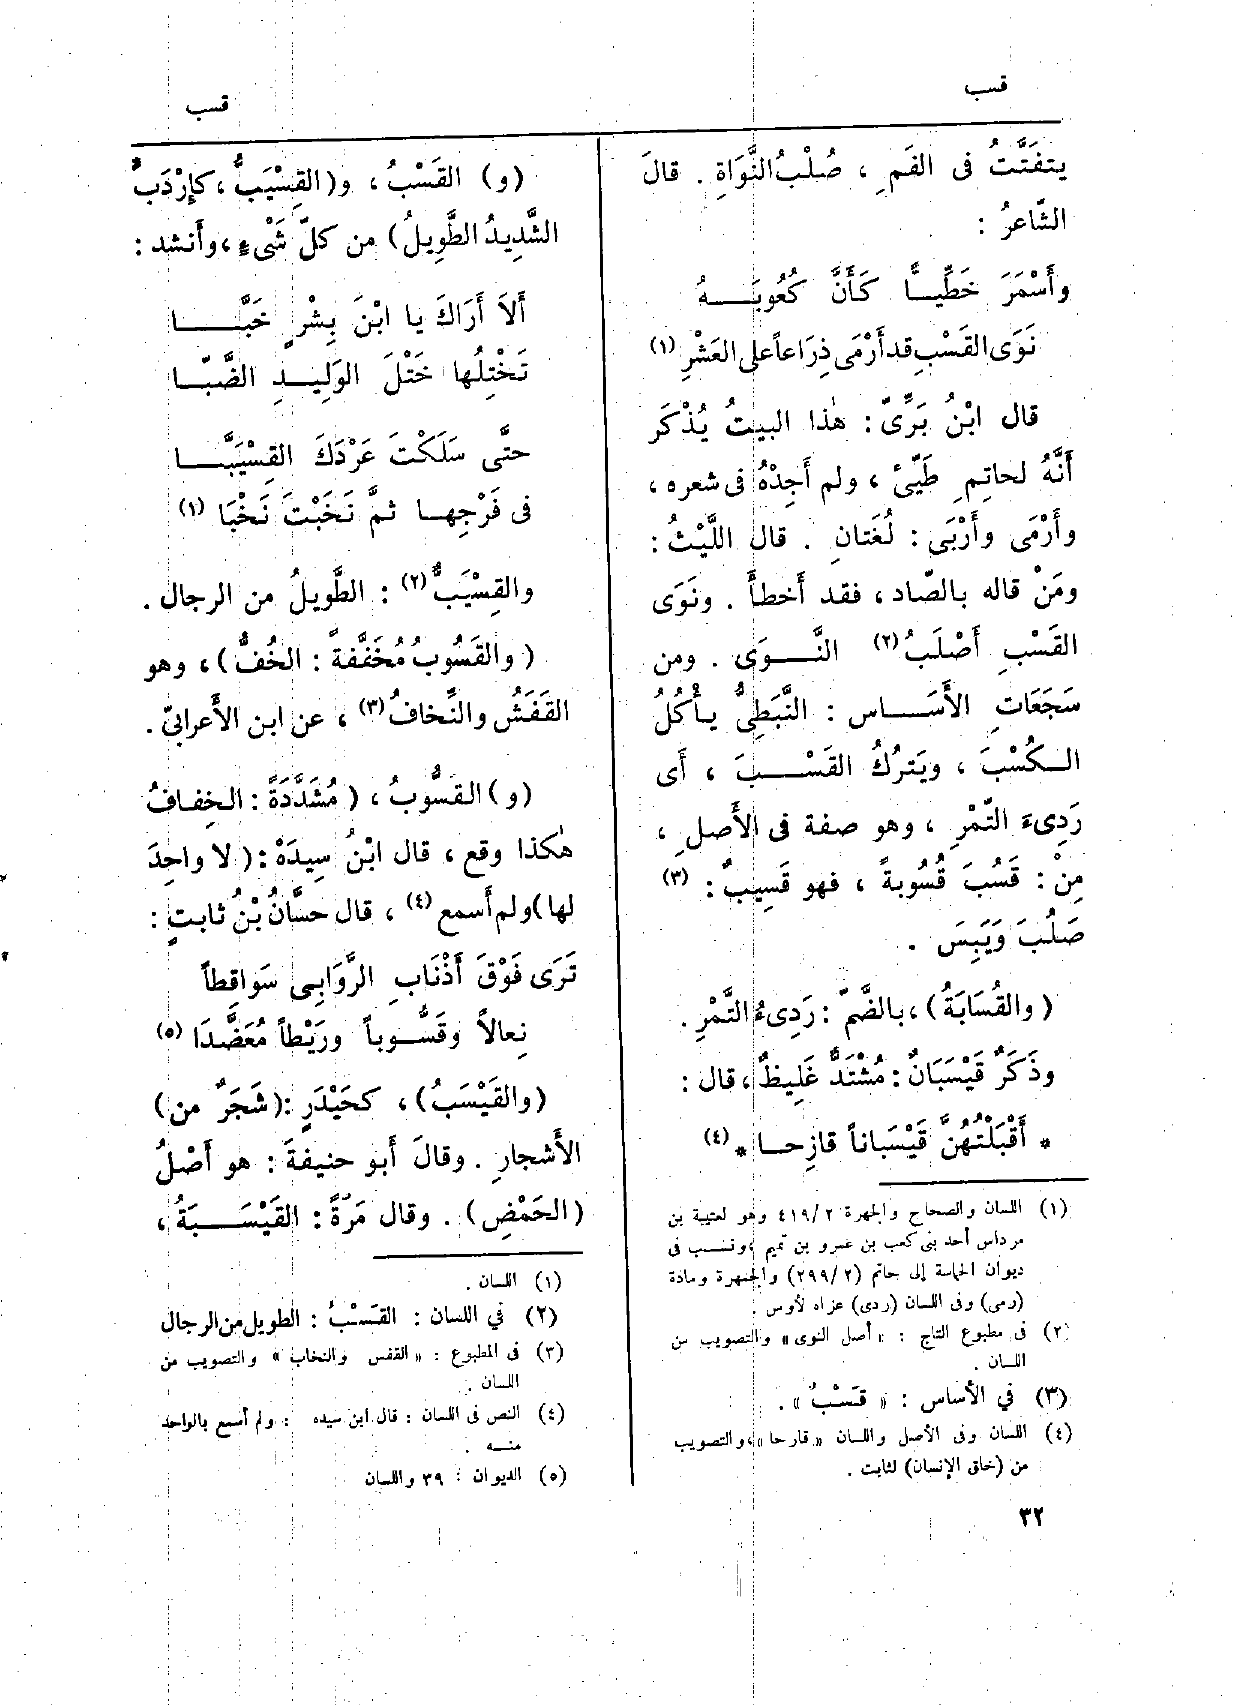 قسب
قسب
يتفَتَّتُ فى الفَمِ ، صُلْبُ النَّوَاةِ . قالَ
الشّاعرُ :
وأَسْمَرَ خَطِّيـاًّ كَأَنَّ كُعُوبَـــهُ
نَوَى القَسْبِ قد أَرْمَى ذِرَاعاً على العَشْرِ (١)
قال ابْنُ بَرِّىّ : هٰذا البيتُ يُذْكَر
أَنَّهُ لحاتِمِ طَيِّئ ، ولم أَجِدْهُ فى شعره ،
وأَرْمَى وأَرْبَى : لُغَتانِ . قال اللَّيْثُ :
ومَنْ قاله بالصّاد ، فقد أَخطأَ . ونَوَى
القَسْبِ أَصْلَبُ (٢) النَّــوَى . ومن
سَجَعَاتِ الأَسَــاس : النَّبَطِىُّ يأْكُلُ
الـكُسْبَ ، ويَترُكُ القَسْــبَ ، أَى
رَدِىءَ التَّمْرِ ، وهو صفة فى الأَصلِ ،
مِنْ : قَسُبَ قُسُوبةً ، فهو قَسِيبٌ : (٣)
صَلُبَ وَيَبِسَ .
( والقُسَابَةُ ) ، بالضَّمّ : رَدِىءُ التَّمْرِ .
وذَكَرٌ قَيْسَبَانٌ : مُشْتَدٌّ غَلِيظٌ ، قال :
* أَقْبَلْتُهُنَّ قَيْسَباناً قازِحـا * (٤)
(١) اللسان والصحاح والجمهرة ٤١٩/٢ وهو لعتيبة بن
مرداس أحد بنى كعب بن عمرو بن تميم ، ونسب فى
ديوان الحماسة إلى حاتم (٢٩٩/٢) والجمهرة ومادة
(رمى) وفى اللسان (ردى) عزاه لأوس .
(٢) فى مطبوع التاج : « أصل النوى » والتصويب من
اللسان .
(٣) في الأساس : « قَسْبٌ » .
(٤) اللسان وفى الأصل واللسان « قارحا » ، والتصويب
من (خلق الإنسان) لثابت .
٣٢
(و) القَسْبُ ، و(القِسْيَبُّ ، كإِرْدَبٍّ
الشَّدِيدُ الطَّوِيلُ) من كلّ شَىْءٍ ، وأَنشد :
أَلاَ أَرَاكَ يا ابْنَ بِشْرٍ خَبَّــا
تَخْتِلُها خَتْلَ الوَلِيدِ الضَّبّـا
حتَّى سَلَكْتَ عَرْدَكَ القِسْيَبَّــا
فى فَرْجِهـا ثمَّ نَخَبْتَ نَخْبَا (١)
والقِسْيَبُّ (٢) : الطَّويلُ من الرجال .
( والقَسُوبُ مُخَفَّفةً : الخُفُّ ) ، وهو
القَفَشُ والنِّخافُ (٣) ، عن ابن الأَعرابىّ .
(و) القَسُّوبُ ، ( مُشَدَّدَةً : الخِفافُ
هٰكذا وقع ، قال ابْنُ سِيدَهْ : ( لا واحِدَ
لها) ولم أَسمع (٤) ، قال حسّانُ بْنُ ثابتٍ :
تَرَى فَوْقَ أَذْنَابِ الرَّوَابِى سَوَاقِطاً
نِعالاً وقَسُّـوباً ورَيْطاً مُعَضَّدَا (٥)
(والقَيْسَبُ) ، كحَيْدَرٍ : (شَجَرٌ من)
الأَشجارِ . وقالَ أَبو حنيفةَ : هو أَصْلُ
(الحَمْضِ) . وقال مَرّةً : القَيْسَــبَةُ ،
(١) اللسان .
(٢) في اللسان : القَسْبُ : الطويل من الرجال
(٣) فى المطبوع : « القفس والنخاب » والتصويب من
اللسان .
(٤) النص فى اللسان : قال ابن سيده : ولم أسمع بالواحد
منـه .
(٥) الديوان : ٣٩ واللسان